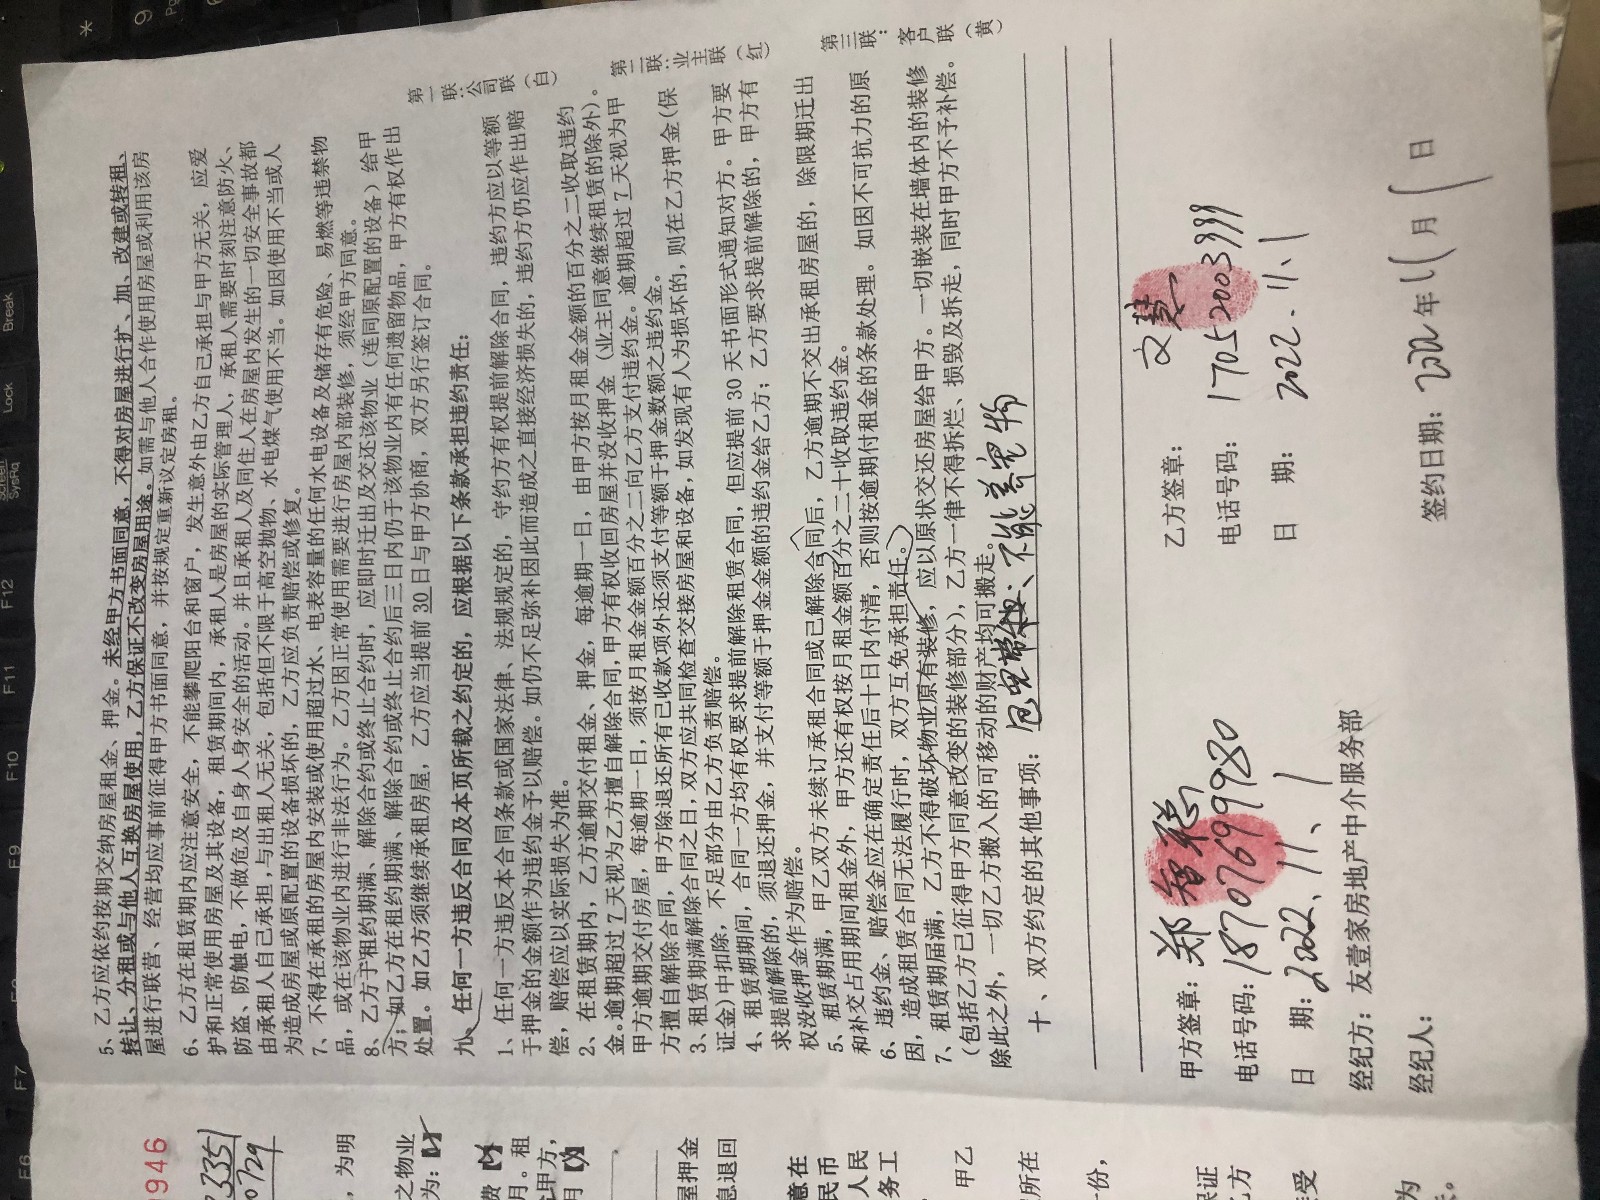 5、乙方应依约按期交纳房屋租金、押金。未经甲方书面同意，不得对房屋进行扩、加、改建或转租、
转让、分租或与他人互换房屋使用，乙方保证不改变房屋用途。如需与他人合作使用房屋或利用该房
屋进行联营、经营均应事前征得甲方书面同意，并按规定重新议定房租。
6、乙方在租赁期内应注意安全，不能攀爬阳台和窗户，发生意外由乙方自己承担与甲方无关，应爱
护和正常使用房屋及其设备，租赁期间内，承租人是房屋的实际管理人，承租人需要时刻注意防火、
防盗、防触电，不做危及自身人身安全的活动。并且承租人及同住人在房屋内发生的一切安全事故都
由承租人自己承担，与出租人无关，包括但不限于高空抛物、水电煤气使用不当。如因使用不当或人
为造成房屋或原配置的设备损坏的，乙方应负责赔偿或修复。
7、不得在承租的房屋内安装或使用超过水、电表容量的任何水电设备及储存有危险、易燃等违禁物
品，或在该物业内进行非法行为。乙方因正常使用需要进行房屋内部装修，须经甲方同意。
8、乙方于租约期满、解除合约或终止合约时，应即时迁出及交还该物业（连同原配置的设备）给甲
方；如乙方在租约期满、解除合约或终止合约后三日内仍于该物业内有任何遗留物品，甲方有权作出
处置。如乙方须继续承租房屋，乙方应当提前 30 日与甲方协商，双方另行签订合同。
九、任何一方违反合同及本页所载之约定的，应根据以下条款承担违约责任：
1、任何一方违反本合同条款或国家法律、法规规定的，守约方有权提前解除合同，违约方应以等额
于押金的金额作为违约金予以赔偿。如仍不足弥补因此而造成之直接经济损失的，违约方仍应作出赔
偿，赔偿应以实际损失为准。
2、在租赁期内，乙方逾期交付租金、押金，每逾期一日，由甲方按月租金金额的百分之二收取违约
金。逾期超过 7 天视为乙方擅自解除合同，甲方有权收回房屋并没收押金（业主同意继续租赁的除外）。
甲方逾期交付房屋，每逾期一日，须按月租金金额百分之二向乙方支付违约金。逾期超过 7 天视为甲
方擅自解除合同，甲方除退还所有已收款项外还须支付等额于押金数额之违约金。
3、租赁期满解除合同之日，双方应共同检查交接房屋和设备，如发现有人为损坏的，则在乙方押金（保
证金）中扣除，不足部分由乙方负责赔偿。
4、租赁期期间，合同一方均有权要求提前解除租赁合同，但应提前 30 天书面形式通知对方。甲方要
求提前解除的，须退还押金，并支付等额于押金金额的违约金给乙方；乙方要求提前解除的，甲方有
权没收押金作为赔偿。
5、租赁期满，甲乙双方未续订承租合同或已解除合同后，乙方逾期不交出承租房屋的，除限期迁出
和补交占用期间租金外，甲方还有权按月租金额百分之二十收取违约金。
6、违约金、赔偿金应在确定责任后十日内付清，否则按逾期付租金的条款处理。如因不可抗力的原
因，造成租赁合同无法履行时，双方互免承担责任。
7、租赁期届满，乙方不得破坏物业原有装修，应以原状交还房屋给甲方。一切嵌装在墙体内的装修
（包括乙方已征得甲方同意改变的装修部分），乙方一律不得拆烂、损毁及拆走，同时甲方不予补偿。
除此之外，一切乙方搬入的可移动的财产均可搬走。
十、双方约定的其他事项：不能养宠物
甲方签章：郑智聪
电话号码：18707699980
日 期：2022、11、1
乙方签章：文慧
电话号码：17052003999
日 期：2022.11.1
经纪方：友壹家房地产中介服务部
经纪人：
签约日期：2022年11月1日
第一联：公司联（白）
第二联：业主联（红）
第三联：客户联（黄）
946
，为明
之物业
为：
费
月。租
甲方，
月
屋押金
息退回
意在
民币
人民
务工
甲乙
所在
份，
保证
方
受
为